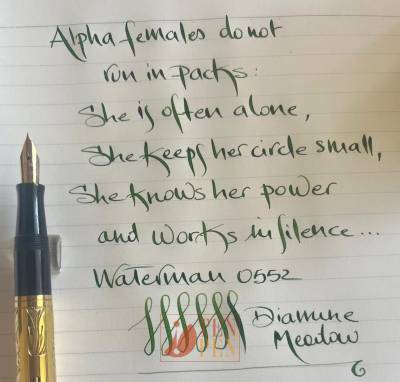 Alpha females do not
run in packs.
She is often alone,
She keeps her circle small,
She knows her power
and works in silence...
Waterman 0552
Diamine
Meadow